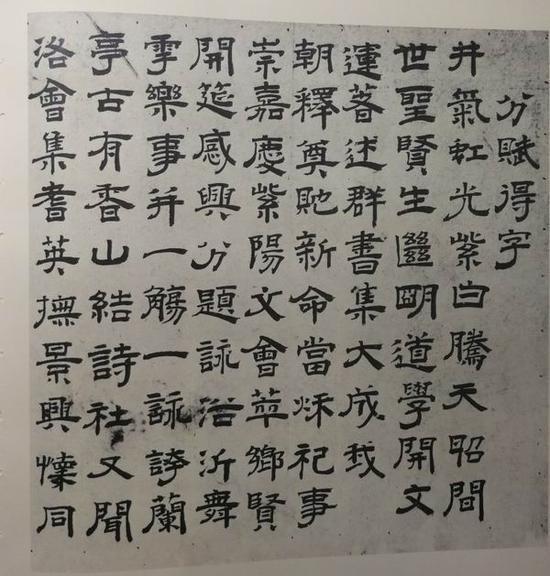 分賦得字
井氣虹光紫白騰天昭間
世聖賢生繼明道學開文
運著述群書集大成我
朝釋奠貤新命當秌祀事
崇嘉慶紫陽文會萃鄉賢
開筵感興分題詠浴沂舞
雩樂事并一觴一詠誇蘭
亭古有香山結詩社又聞
洛會集耆英撫景興懷同